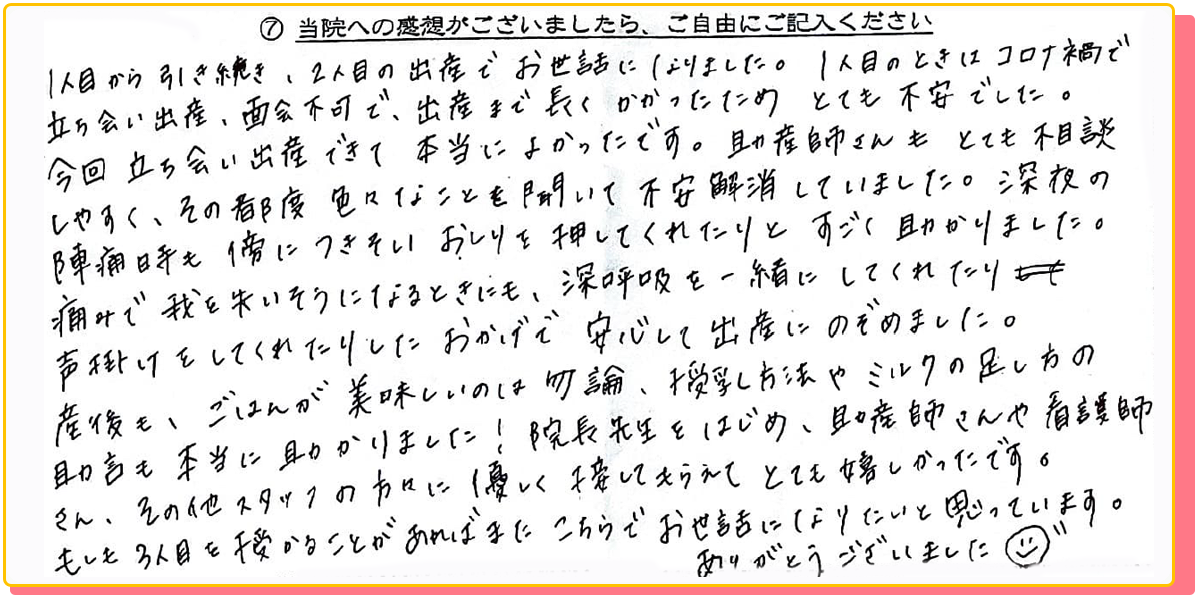 ⑦ 当院への感想がございましたら、ご自由にご記入ください
1人目から引き続き、2人目の出産でお世話になりました。1人目のときはコロナ禍で
立ち会い出産、面会不可で、出産まで長くかかったため とても不安でした。
今回立ち会い出産できて本当によかったです。助産師さんもとても相談
しやすく、その都度色々なことを聞いて不安解消していました。深夜の
陣痛時も傍につきそいおしりを押してくれたりとすごく助かりました。
痛みで我を失いそうになるときにも、深呼吸を一緒にしてくれたり
声掛けをしてくれたりしたおかげで安心して出産にのぞめました。
産後も、ごはんが美味しいのは勿論、授乳し方法やミルクの足し方の
助言も本当に助かりました！院長先生をはじめ、助産師さんや看護師
さん、その他スタッフの方々に優しく接してもらえてとても嬉しかったです。
もしも3人目を授かることがあればまたこちらでお世話になりたいと思っています。
ありがとうございました